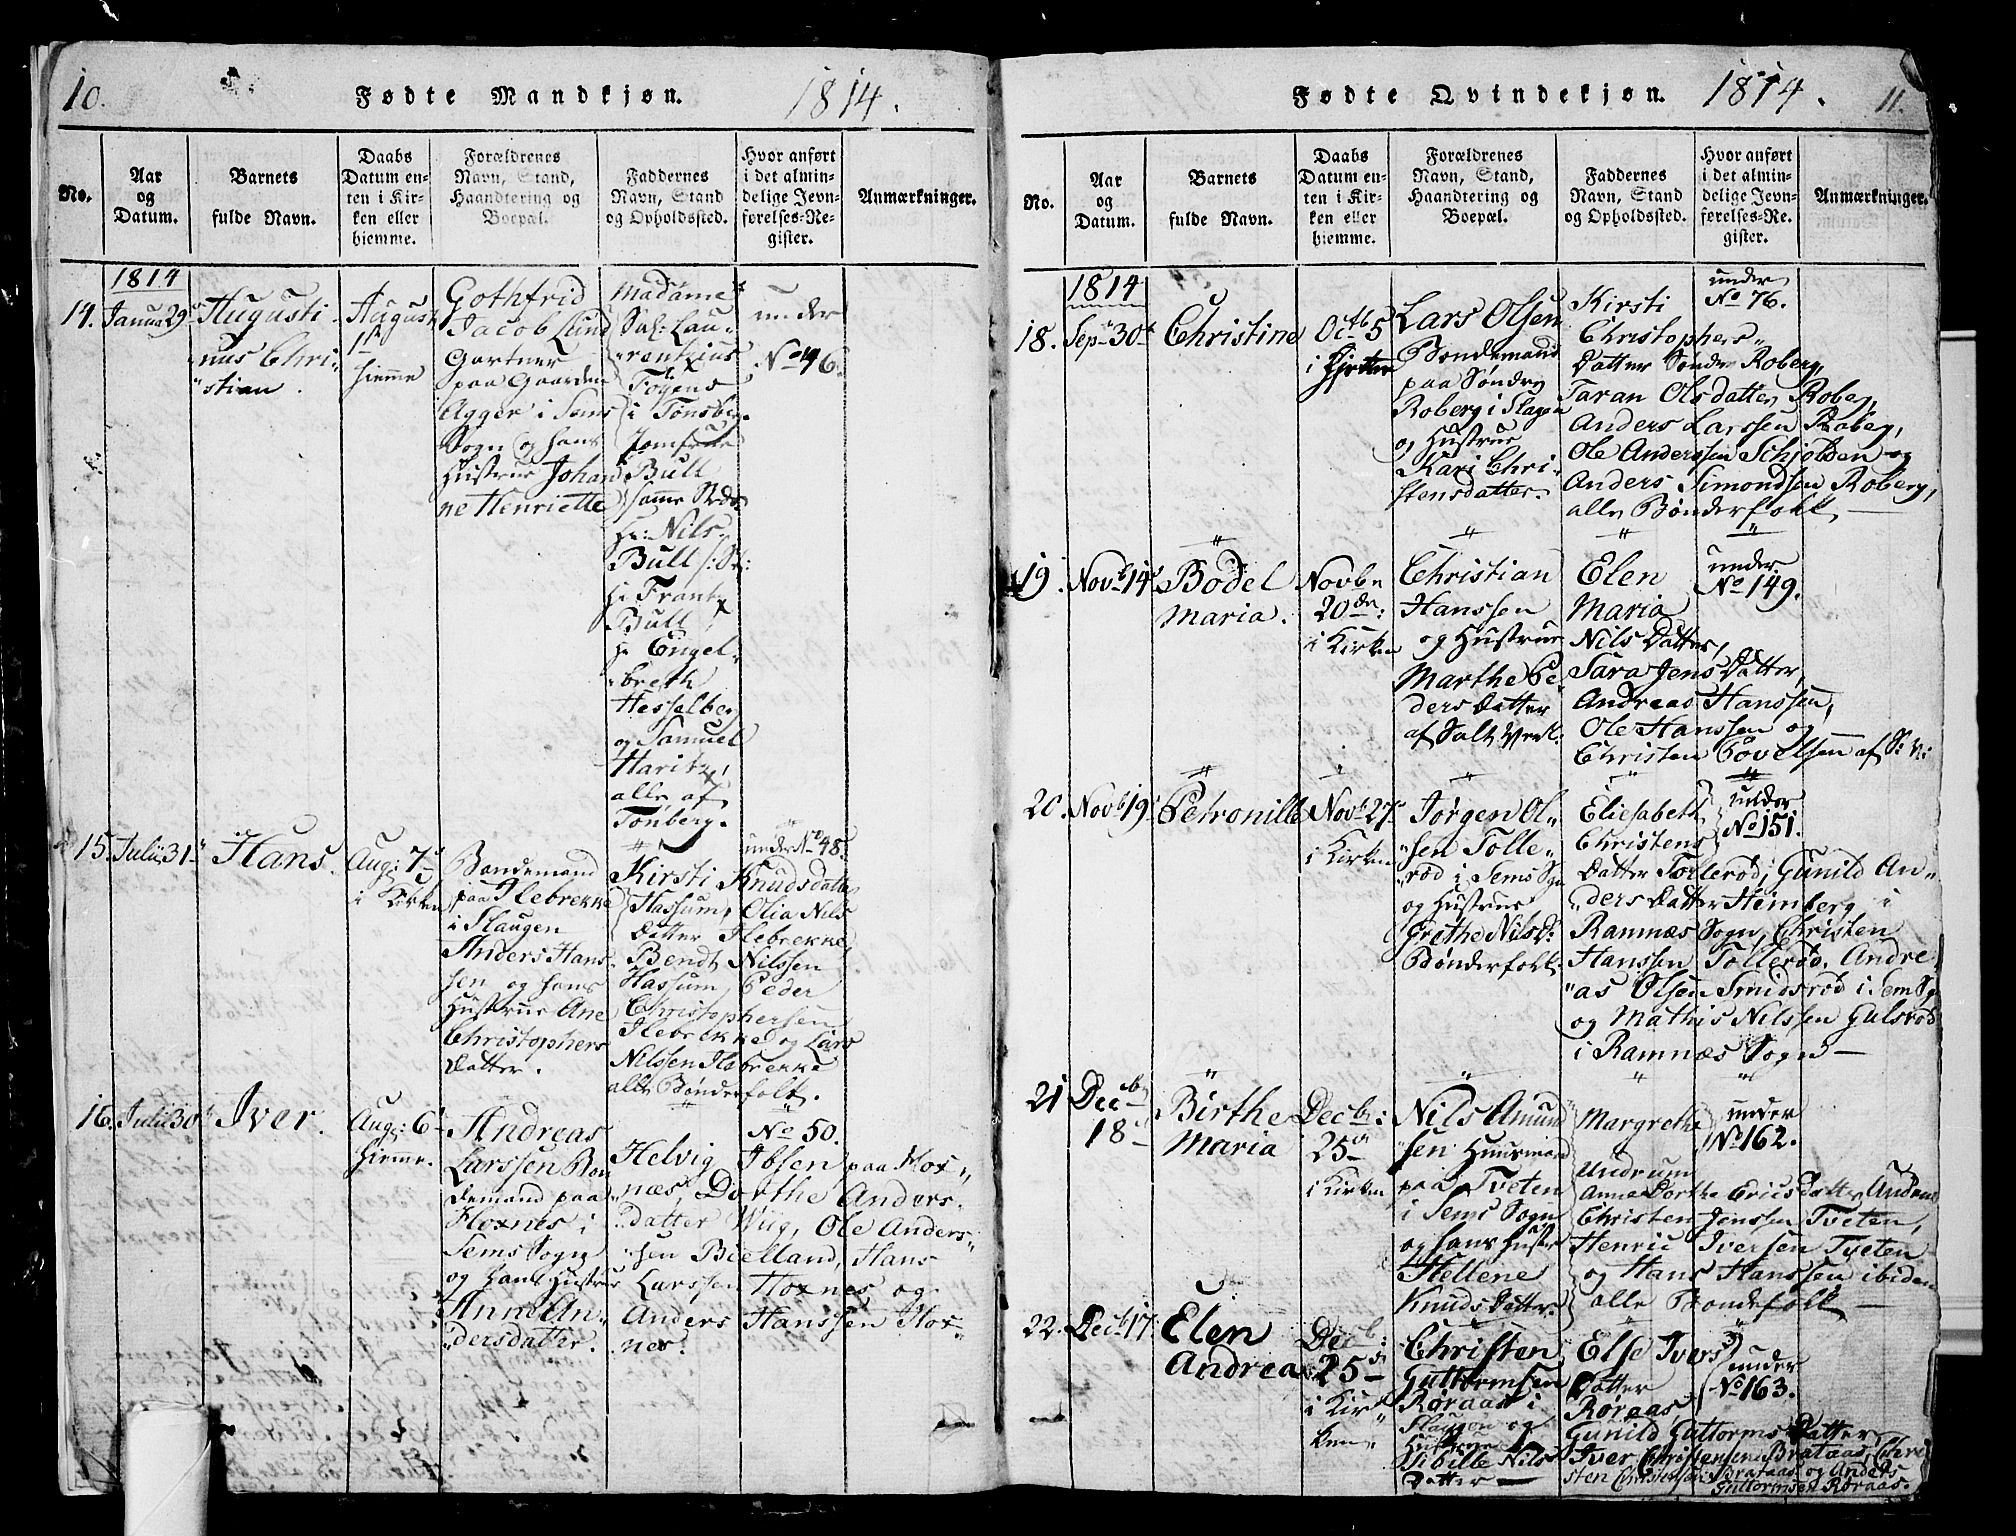 10.
Fødte Mandkjøn. 1814.
No.
Aar
og
Datum.
Barnets
fulde Navn.
Daabs
Datum en-
ten i Kir-
ken eller
hiemme.
Forældrenes
Navn, Stand,
Haandtering og
Boepæl.
Faddernes
Navn, Stand
og Opholdssted.
Hvor anført
i det almin-
delige Jevn-
førelses-Re-
gister.
Anmærkninger.
1814
14. Janua 29
Augusti
nus Chri-
"stian.
August
1ste
hiemme
Gothfrid
Jacob Lund
Gartner
paa Gaarden
Agger i Sems
Sogn og hans
Hustrue Johan
ne Henriette
Madame
Sal: Lau-
"rentzius
Foyens
i Tønsberg.
Jomfrue
Bull
samme Sted.
Hr: Nils
Bull
Hr Frantz
Bull,
Hr Engel-
"breth
Hesselberg
og Samuel
Haritz,
alle af
Tonberg.
under
No 46.
15. Julii 31
Hans.
Aug: 7
i Kirken
Bondemand
paa Ilebrekke
i Slaugen
Anders Hans
sen og hans
Hustrue Ane
Christophers
Datter.
Kirsti Knudsdatter
Hassum, Olia Nils
Datter Ilebrekke,
Bendt Nilssen
Hassum, Peder
Christophersen
Ilebrekke og Lars
Nilssen Ilebrekke
alle Bønderfolk.
under No 48.
16. Julii 30
Iver.
Aug: 6
hiemme.
Andreas
Larssen Bon
demand paa
Hoxnes i
Sems Sogn
og hans Hustrue
Anne An-
"dersdatter.
Helvig Ibsen paa Hox-
"næs, Dorthe Anders-
"datter Wiig, Ole Anders-
"sen Bielland, Hans
Larssen Hoxnes og
Anders Hanssen Hox-
nes.
No 50.
Fødte Qvindekjøn. 1814. 11.
No.
Aar
og
Datum.
Barnets
fulde Navn.
Daabs
Datum en-
ten i Kir-
ken eller
hiemme.
Forældrenes
Navn, Stand,
Haandtering og
Boepæl.
Faddernes
Navn, Stand
og Opholdssted.
Hvor anført
i det almin-
delige Jevn-
førelses-Re-
gister.
Anmærkninger.
1814
18. Sep 30
Christine
Octb 5
i
Lars Olsen
Bondemand
paa Søndre
Roberg i Slagen
og Hustrue
Kari Chri-
stensdatter.
Kirsti
Christophers-
Datter Søndre Roberg,
Taran Olsdatter Roberg,
Anders Larssen Roberg,
Ole Anderssen Schjolden og
Anders Simondsen Roberg,
alle Bønderfolk,
under
No 76.
19. Novb 14
Bodel
Maria.
Novbr
20de:
i Kirken
Christian
Hanssen
og Hustrue
Marthe Pe-
ders Datter
af Salt Verk:
Elen
Maria
Nils Datter,
Sara Jens Datter,
Andreas Hanssen,
Ole Hanssen og
Christen Povelsen af S: V:
under
No 149.
20. Novb 19
Petronille
Novb 27
i Kirken
Jørgen Ol-
"sen Tolle-
rød i Sems Sogn
og Hustrue
Grethe Nils D:
Bønderfolk:
Eliesabeth
Christens
Datter Tollerød, Gunild An-
"ders Datter Hemberg i
Ramnæs Sogn, Christen
Hanssen Tollerød, Andre-
"as Olsen Smidsrød i Sem Sogn
og Mathis Nilssen Gulsrod
i Ramnæs Sogn
under
No 151.
21. Decb
18
Birthe
Maria
Decb:
25
i Kirken
Nils Amund
"sen Huusmand
paa Tveten
i Sems Sogn
og hans Hustr
Hellene
Knuds Datter.
Margrethe
Undrum
Anne Dorthe Erics Datter
Christen Jenssen Tveten,
Henric Iversen Tveten
og Hans Hanssen ibidem
alle Bondefolk
under
No 162.
22. Decb 17
Elen
Andrea
Decb:
25
i Kir-
ken
Christen
Guttormsen
Røraas i
Slaugen og
Hustrue
Sibille Nils
Datter
Else Ivers
Datter
Røraas,
Gunild Guttorms Datter,
Iver Christensen Brataas, Chri
sten Christensen Brataas og Anders
Guttormsen Røraas.
under
No 163.